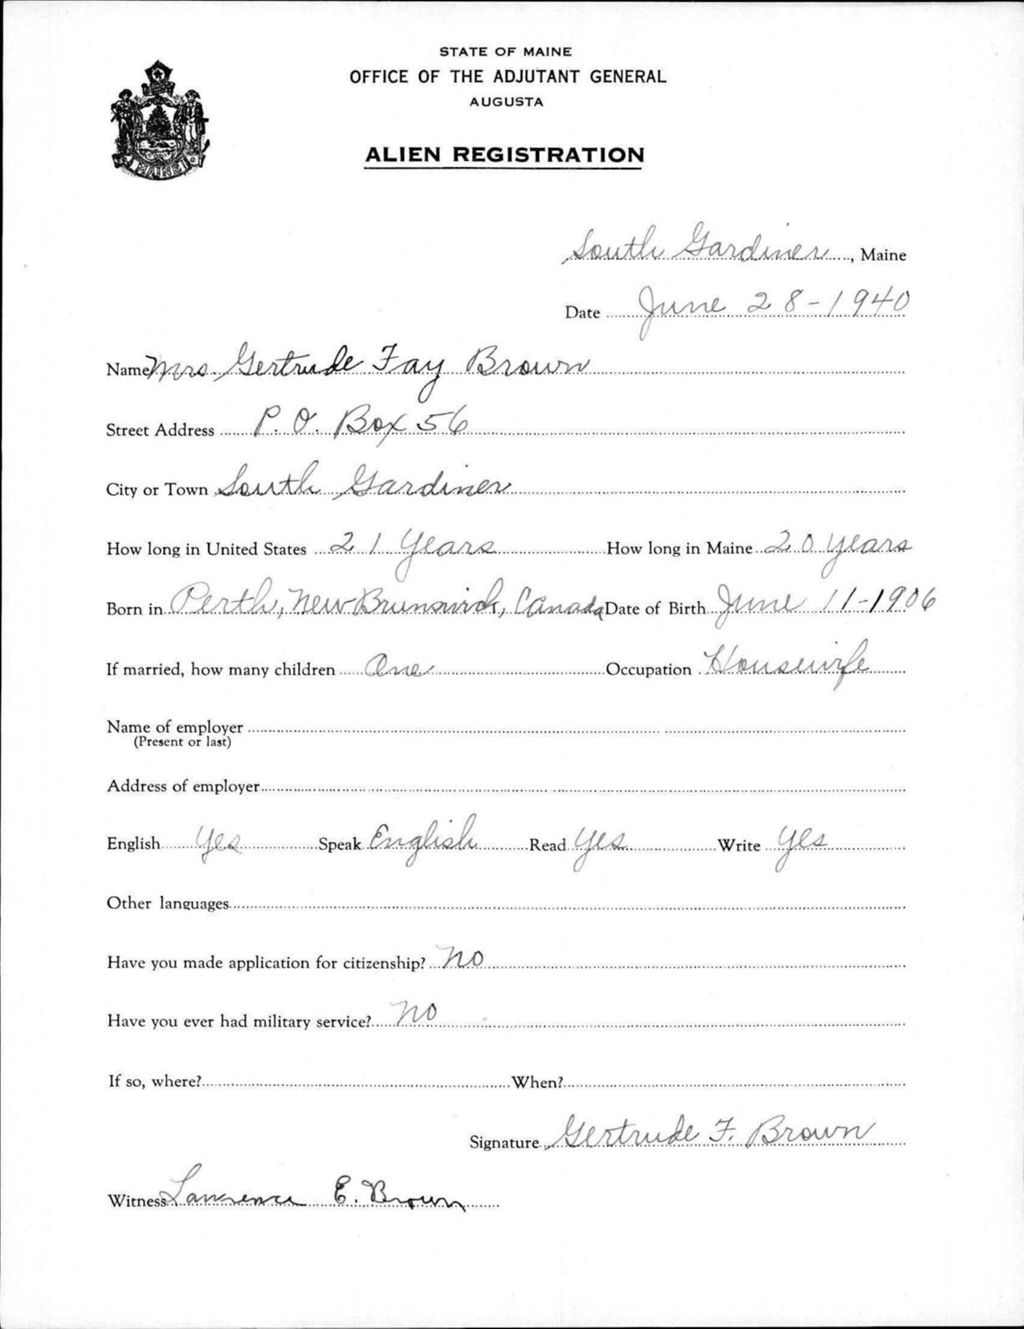 STATE OF MAINE
OFFICE OF THE ADJUTANT GENERAL
AUGUSTA
ALIEN REGISTRATION
MAINE
South Gardiner, Maine
Date June 28-1940
Name Mrs. Gertrude Fay Brown
Street Address P. O. Box 56
City or Town South Gardiner
How long in United States 21 Years How long in Maine 20 years
Born in Perth, New Brunswick, Canada Date of Birth June 11-1906
If married, how many children One Occupation Housewife
Name of employer
(Present or last)
Address of employer
English Yes Speak English Read Yes Write Yes
Other languages
Have you made application for citizenship? No
Have you ever had military service? No
If so, where? When?
Signature Gertrude F. Brown
Witness Lawrence E. Brown